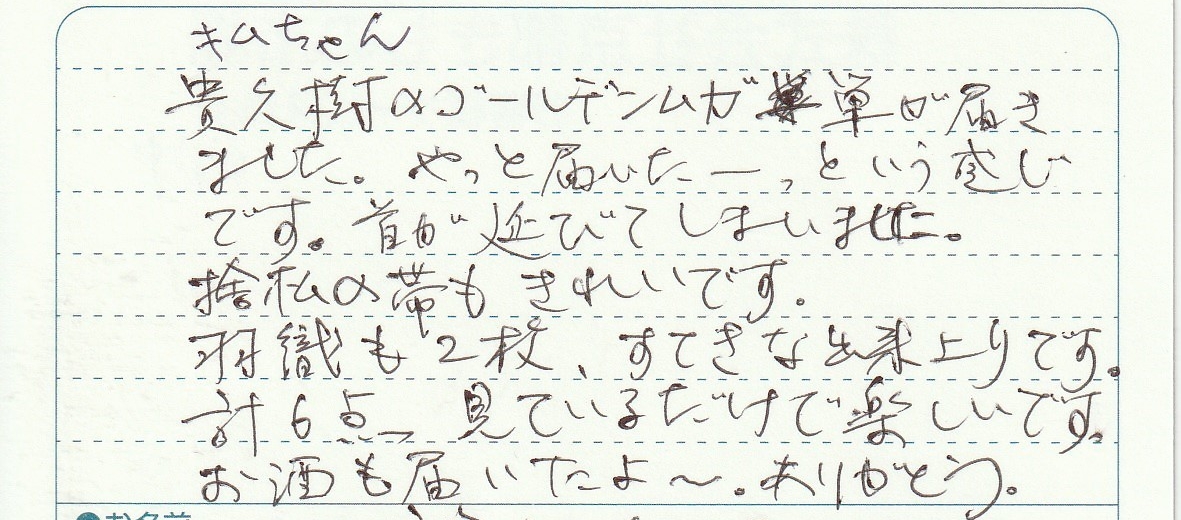 キムちゃん
貴久樹のゴールデンムガ 単が届き
ました。やっと届いたー、という感じ
です。首が延びてしまいました。
捨松の帯もきれいです。
羽織も2枚、すてきな出来上りです。
計6点、見ているだけで楽しいです。
お酒も届いたよ〜。ありがとう。
お名前